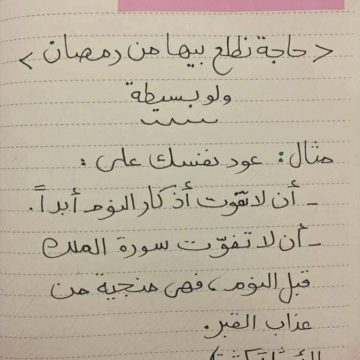 < حاجة نطلع بيها من رمضان >
ولو بسيطة
مثال: عود نفسك على:
- أن لا تفوت أذكار النوم أبداً.
- أن لا تفوّت سورة الملك
قبل النوم، فهي منجية من
عذاب القبر.